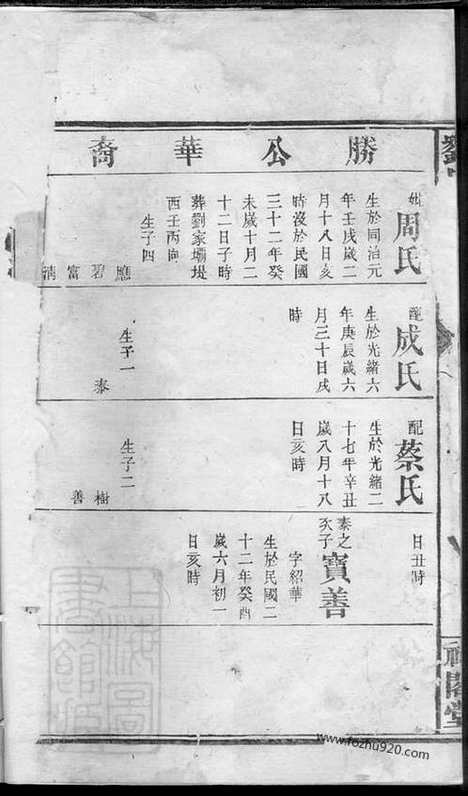 勝公華裔
妣周氏
生於同治元
年壬戌歲二
月十八日亥
時沒於民國
三十二年癸
未歲十月二
十二日子時
葬劉家壩堤
西壬丙向
生子四
應
碧
富
清
配成氏
生於光緒六
年庚辰歲六
月三十日戌
時
生子一
泰
配蔡氏
生於光緒二
十七年辛丑
歲八月十八
日亥時
生子二
樹
善
日丑時
泰之
次子
寶善
字紹華
生於民國二
十二年癸酉
歲六月初一
日亥時
祿閣堂
www.fozhu920.com